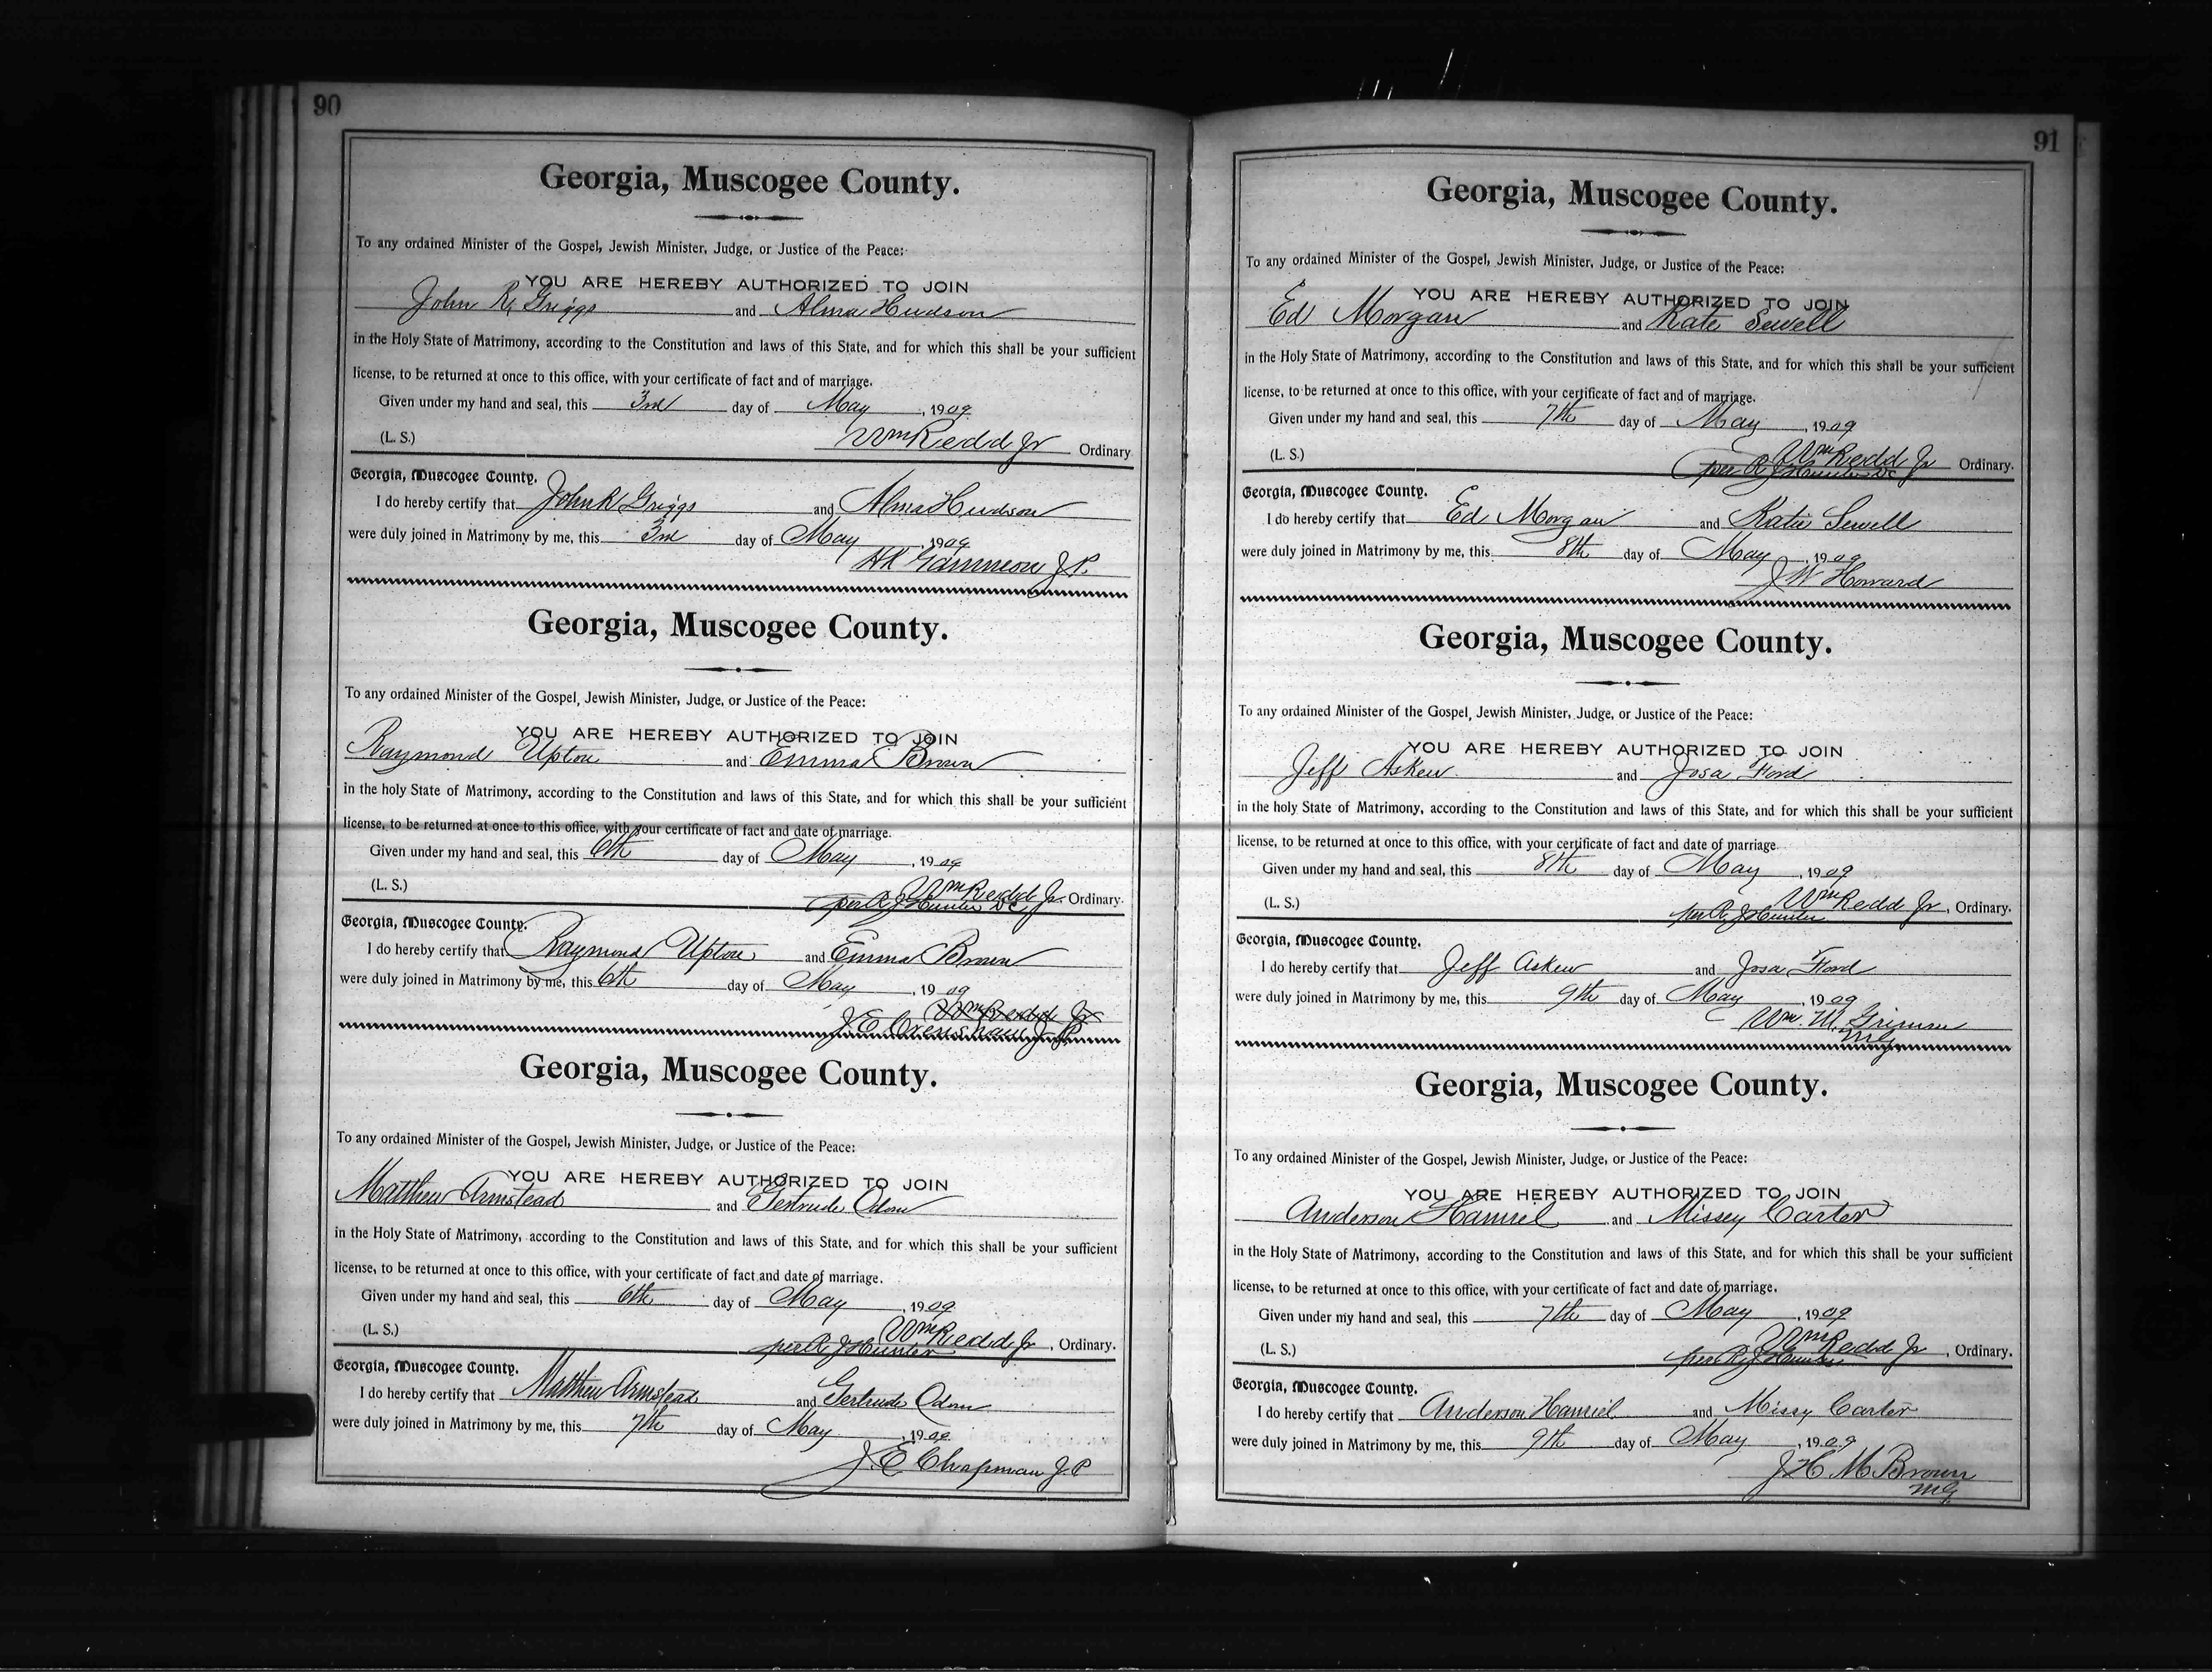 90
Georgia, Muscogee County.
To any ordained Minister of the Gospel, Jewish Minister, Judge, or Justice of the Peace:
YOU ARE HEREBY AUTHORIZED TO JOIN
John R. Griggs and Alma Hudson
in the Holy State of Matrimony, according to the Constitution and laws of this State, and for which this shall be your sufficient
license, to be returned at once to this office, with your certificate of fact and of marriage.
Given under my hand and seal, this 3rd day of May, 1909
(L. S.) Wm Redd Jr Ordinary
Georgia, Muscogee County.
I do hereby certify that John R Griggs and Alma Hudson
were duly joined in Matrimony by me, this 3rd day of May, 1909
J.P.
Georgia, Muscogee County.
To any ordained Minister of the Gospel, Jewish Minister, Judge, or Justice of the Peace:
YOU ARE HEREBY AUTHORIZED TO JOIN
Raymond Upton and Emma Brown
in the holy State of Matrimony, according to the Constitution and laws of this State, and for which this shall be your sufficient
license, to be returned at once to this office, with your certificate of fact and date of marriage.
Given under my hand and seal, this 6th day of May, 1909
(L. S.) Wm Redd Jr. Ordinary.
per R J Hunter DC
Georgia, Muscogee County.
I do hereby certify that Raymond Upton and Emma Brown
were duly joined in Matrimony by me, this 6th day of May, 1909
Wm Redd Jr
J.E. Crenshaw J.P.
Georgia, Muscogee County.
To any ordained Minister of the Gospel, Jewish Minister, Judge, or Justice of the Peace:
YOU ARE HEREBY AUTHORIZED TO JOIN
Matthew Armstead and Gertrude Odom
in the Holy State of Matrimony, according to the Constitution and laws of this State, and for which this shall be your sufficient
license, to be returned at once to this office, with your certificate of fact and date of marriage.
Given under my hand and seal, this 6th day of May, 1909
(L. S.) Wm Redd Jr, Ordinary.
per R J Hunter
Georgia, Muscogee County.
I do hereby certify that Matthew Armstead and Gertrude Odom
were duly joined in Matrimony by me, this 7th day of May, 1909
J. E Chapman J.P
91
Georgia, Muscogee County.
To any ordained Minister of the Gospel, Jewish Minister, Judge, or Justice of the Peace:
YOU ARE HEREBY AUTHORIZED TO JOIN
Ed Morgan and Kate Sewell
in the Holy State of Matrimony, according to the Constitution and laws of this State, and for which this shall be your sufficient
license, to be returned at once to this office, with your certificate of fact and of marriage.
Given under my hand and seal, this 7th day of May, 1909
(L. S.) Wm Redd Jr Ordinary.
per R J Hunter DC
Georgia, Muscogee County.
I do hereby certify that Ed Morgan and Katie Sewell
were duly joined in Matrimony by me, this 8th day of May, 1909
J W Howard
Georgia, Muscogee County.
To any ordained Minister of the Gospel, Jewish Minister, Judge, or Justice of the Peace:
YOU ARE HEREBY AUTHORIZED TO JOIN
Jeff Askew and Josa Ford
in the holy State of Matrimony, according to the Constitution and laws of this State, and for which this shall be your sufficient
license, to be returned at once to this office, with your certificate of fact and date of marriage
Given under my hand and seal, this 8th day of May, 1909
(L. S.) Wm Redd Jr, Ordinary.
per R J Hunter
Georgia, Muscogee County.
I do hereby certify that Jeff Askew and Josa Ford
were duly joined in Matrimony by me, this 9th day of May, 1909
Wm. M. Grimm
MG
Georgia, Muscogee County.
To any ordained Minister of the Gospel, Jewish Minister, Judge, or Justice of the Peace:
YOU ARE HEREBY AUTHORIZED TO JOIN
Anderson Hamiel and Missey Carter
in the Holy State of Matrimony, according to the Constitution and laws of this State, and for which this shall be your sufficient
license, to be returned at once to this office, with your certificate of fact and date of marriage.
Given under my hand and seal, this 7th day of May, 1909
(L. S.) Wm Redd Jr, Ordinary.
per R J Hunter
Georgia, Muscogee County.
I do hereby certify that Anderson Hamiel and Missy Carter
were duly joined in Matrimony by me, this 9th day of May, 1909
J H M Brown
MG